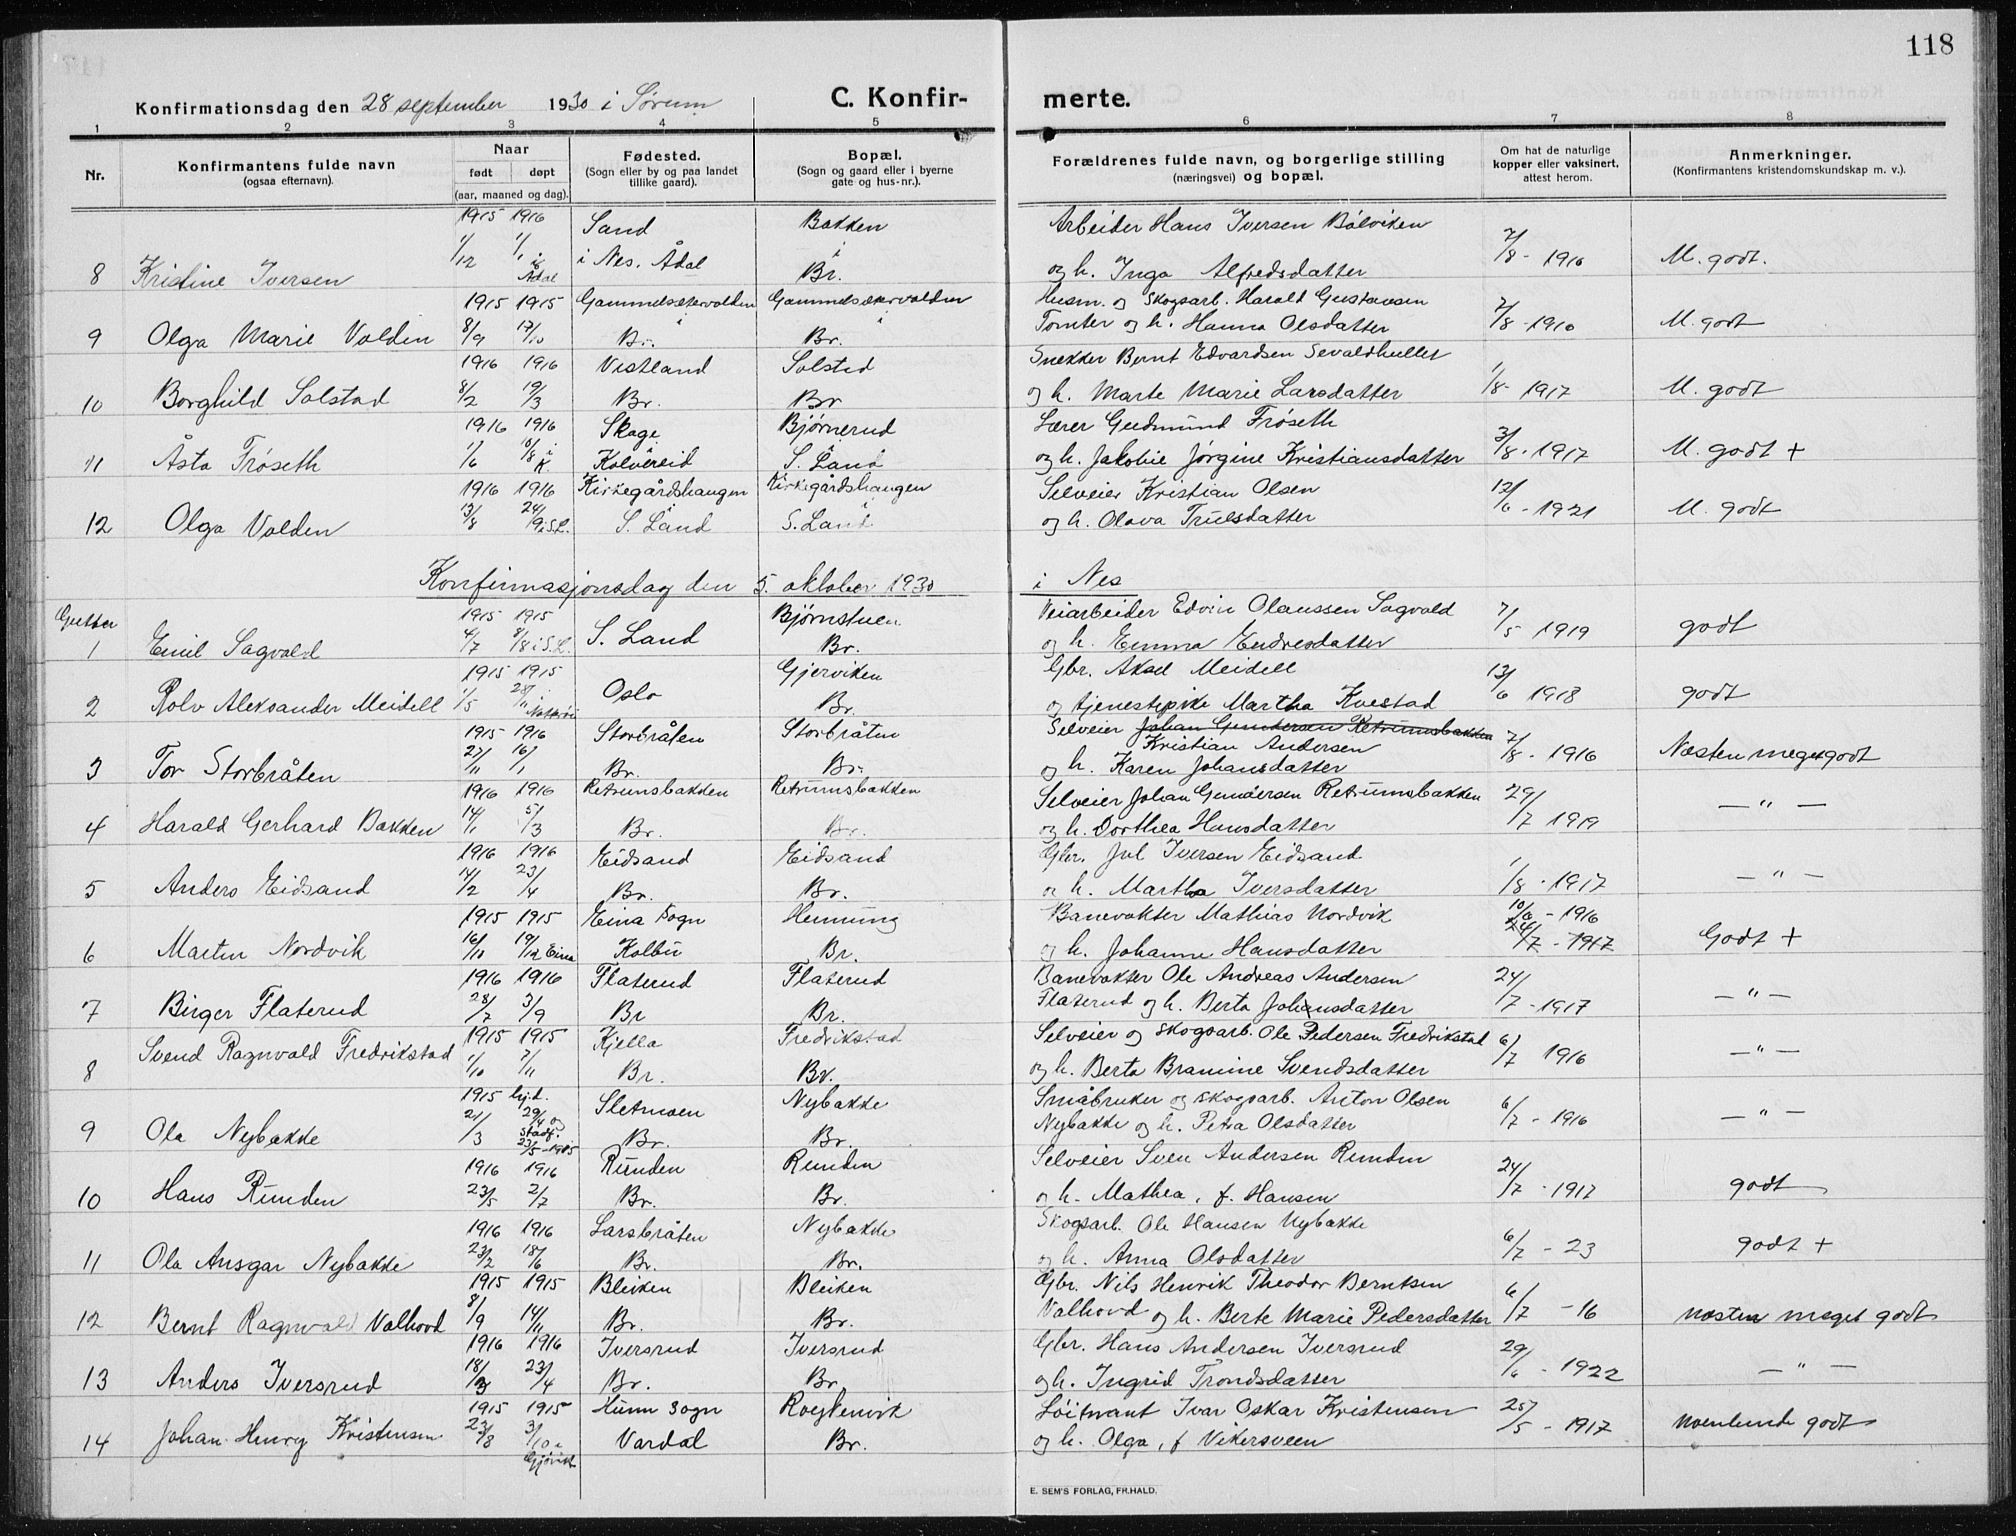 118
Konfirmationsdag den 28 september 1930 i Sørum
C. Konfir- merte.
1 2 3 4 5 6 7 8
Nr.
Konfirmantens fulde navn
(ogsaa efternavn).
Naar
født døpt
(aar, maaned og dag).
Fødested.
(Sogn eller by og paa landet
tillike gaard).
Bopæl.
(Sogn og gaard eller i byerne
gate og hus-nr.).
Forældrenes fulde navn, og borgerlige stilling
(næringsvei) og bopæl.
Om hat de naturlige
kopper eller vaksinert.
attest herom.
Anmerkninger.
(Konfirmantens kristendomskundskap m. v.).
1915 1916 Sand Bakken Arbeider Hans Iversen Bålviken
8 Kristine Iversen 1/12 1/1 i Ådal i Nes, Ådal i Br. og h. Inga Alfredsdatter 7/8 - 1916 M. godt.
1915 1915 Gammelsætervolden Gammelsætervolden Husm. og Skogsarb. Harald Gustavsen
9 Olga Marie Volden 8/9 17/10 i Br. i Br. Tomter og h. Hanna Olsdatter 7/8 - 1916 M. godt
1916 1916 Vestland Solstad Snekker Bernt Edvardsen Sevaldhullet
10 Borghild Solstad 8/2 19/3 Br. Br og h. Marte Marie Larsdatter 1/8 - 1917 M. godt
1916 1916 Skage Bjørnerud Lærer Gudmund Frøseth
11 Åsta Frøseth 1/6 18/8 i K. Kolvereid S. Land og h. Jakobie Jørgine Kristiansdatter 3/8 - 1917 M. godt +
1916 1916 Kirkegårdshaugen Kirkegårdshaugen Selveier Kristian Olsen
12 Olga Volden 13/8 24/9 i S.L. i S. Land i S. Land og h. Olava Trulsdatter 12/6 - 1921 M. godt
Konfirmasjonsdag den 5. oktober 1930 i Nes
Gutter 1915 1915 Bjørnstuen Veiarbeider Edvin Olaussen Sagvold
1 Emil Sagvold 4/7 8/8 i S.L. S. Land Br. og h. Emma Endresdatter 7/5 1919 godt
1915 1915 Gjerviken Gbr. Aksel Meidell
2 Rolv Aleksander Meidell 1/5 28/11 Oslo Br. og tjenestepike Martha Kvestad 13/6 1918 godt
1915 1916 Storbråten Storbråten Selveier Johan Gundersen Retrumsbakken
Kristian Andersen
3 Tor Storbråten 27/11 16/1 Br. Br. og h. Karen Johansdatter 7/8 - 1916 Næsten meget godt
1916 1916 Retrumsbakken Retrumsbakken Selveier Johan Gundersen Retrumsbakken
4 Harald Gerhard Bakken 14/1 5/3 Br. Br. og h. Dorthea Hansdatter 29/7 1919 — " —
1916 1916 Eidsand Eidsand Gbr. Jul Iversen Eidsand
5 Anders Eidsand 14/2 23/4 Br. Br. og h. Martha Iversdatter 1/8 - 1917 — " —
1915 1915 Eina Sogn Hennung Banevokter Mathias Nordvik 10/6 - 1916
6 Martin Nordvik 16/10 19/12 Eina Kolbu Br. og h. Johanne Hansdatter 24/7 - 1917 Godt +
1916 1916 Flaterud Flaterud Banevokter Ole Andreas Andersen
7 Birger Flaterud 28/7 3/9 Br Br. Flaterud og h. Berta Johansdatter 24/7 - 1917 — " —
1915 1915 Kjella Fredrikstad Selveier og Skogsarb. Ole Pedersen Fredrikstad
8 Svend Ragnvald Fredrikstad 1/10 7/11 Br. Br. og h. Berta Bramine Svendsdatter 6/7 1916 — " —
1915 hj.d. Sletmoen Nybakke Småbruker og skogsarb. Anton Olsen
9 Ola Nybakke 21/3 29/4 og stadf. 23/5 - 1915 Br. Br. Nybakke og h. Petra Olsdatter 6/7 - 1916 — " —
1916 1916 Runden Runden Selveier Sven Andersen Runden
10 Hans Runden 23/5 2/7 Br. Br. og h. Mathea, f. Hansen 24/7 - 1917 godt
1916 1916 Larsbråten Nybakke Skogsarb. Ole Hansen Nybakke
11 Ola Ansgar Nybakke 23/2 18/6 Br. Br. og h. Anna Olsdatter 6/7 - 23 godt +
1915 1915 Bleiken Bleiken Gbr. Nils Henrik Theodor Berntsen
12 Bernt Ragnvald Valhovd 8/9 14/11 Br. Br. Valhovd og h. Berte Marie Pedersdatter 6/7 - 16 næsten meget godt
1916 1916 Iversrud Iversrud Gbr. Hans Andersen Iversrud
13 Anders Iversrud 18/3 23/4 Br. Br og h. Ingrid Trondsdatter 29/6 - 1922 — " —
1915 1915 Hunn sogn Røykenvik Løitnant Ivar Oskar Kristensen
14 Johan Henry Kristensen 22/8 3/10 i Gjøvik Vardal Br. og h. Olga, f Vikersveen 25/5 - 1917 noenlunde godt
E. SEM'S FORLAG, FR.HALD.